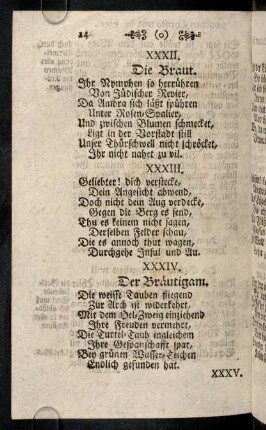 14 (o)
XXXII.
Die Braut.
Ihr Nymphen so herrühren
Von Jüdischer Revier,
Da Ambra sich läßt spühren
Unter Rosen-Spalier,
Und zwischen Blumen schmecket,
Ligt in der Vorstadt still
Unser Thürschwell nicht schröcket,
Ihr nicht nahet zu vil.
XXXIII.
Geliebter! dich verstecke,
Dein Angesicht abwend,
Doch nicht dein Aug verdecke,
Gegen die Berg es send,
Thu es keinem nicht sagen,
Derselben Felder schau,
Die es annoch thut wagen,
Durchgehe Insul und Au.
XXXIV.
Der Bräutigam.
Die weisse Tauben fliegend
Zur Arch ist widerkehrt,
Mit dem Oel-Zweig einziehend
Ihre Freuden vermehrt,
Die Turtel-Taub ingleichem
Ihre Gespanschafft spat,
Bey grünen Wasser-Teichen
Endlich gefunden hat.
XXXV.